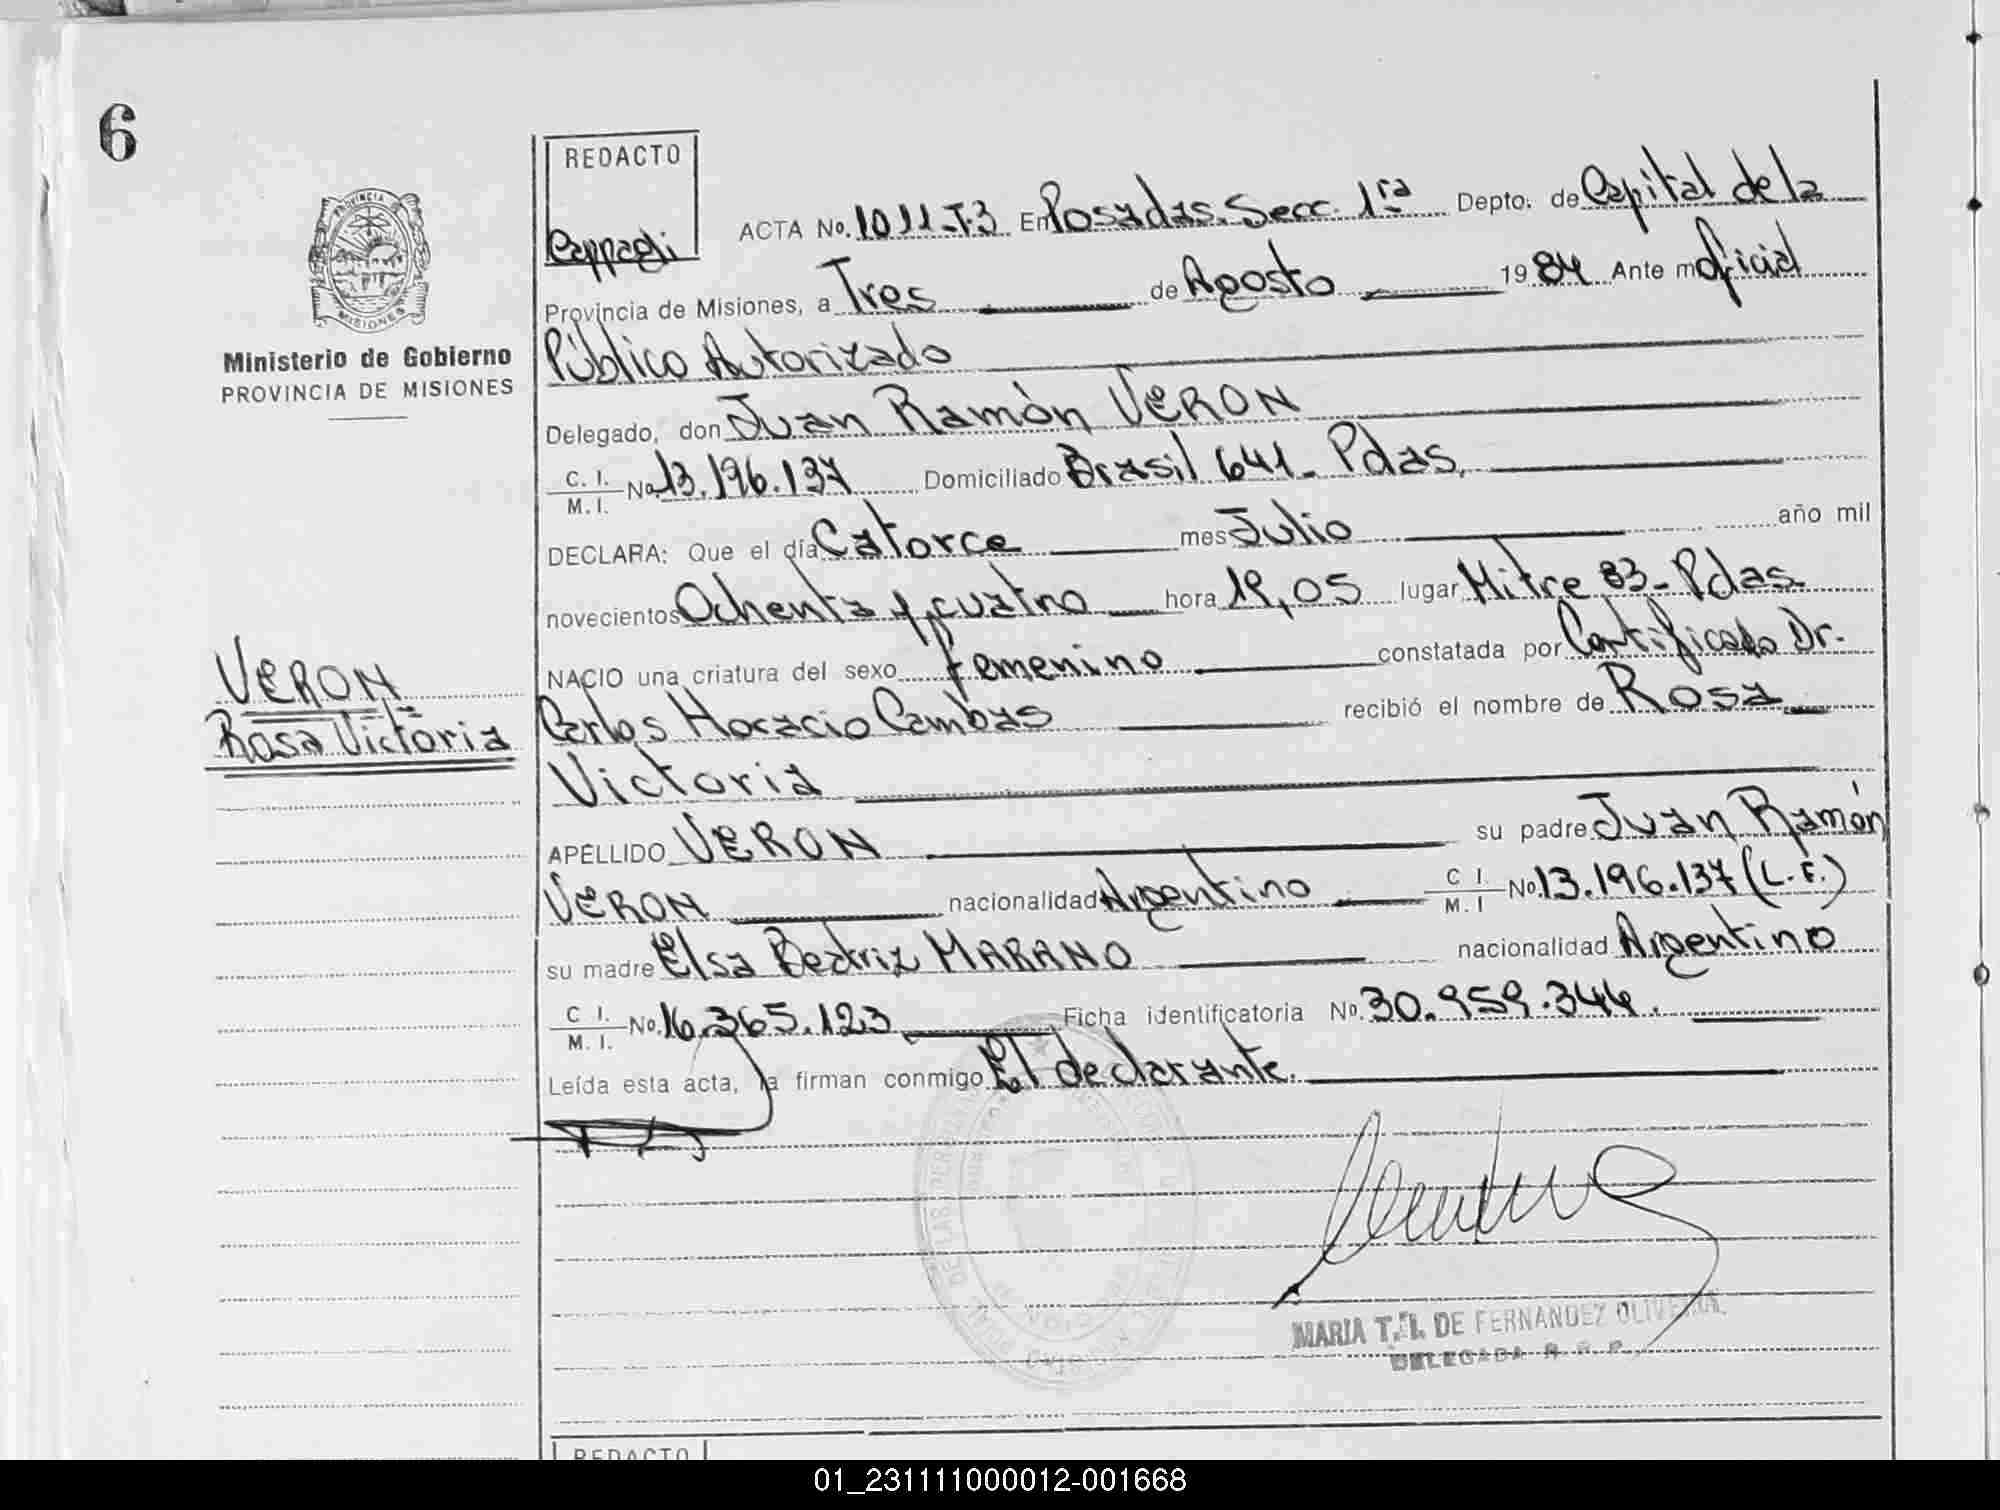 6
PROVINCIA
MISIONES
Ministerio de Gobierno
PROVINCIA DE MISIONES
VERON
Rosa Victoria
REDACTO
Cappagli
ACTA No. 1011-T.3 En Posadas. Secc. 1ra Depto: de Capital de la
Provincia de Misiones, a Tres de Agosto 1984 Ante mi Oficial
Público Autorizado
Delegado, don Juan Ramón VERON
C. I.
M. I. No 13.196.137 Domiciliado Brasil 641 - Pdas.
DECLARA: Que el día Catorce mes Julio año mil
novecientos Ochenta y cuatro hora 19,05 lugar Mitre 83 - Pdas.
NACIO una criatura del sexo femenino constatada por Certificado Dr.
Carlos Horacio Cambas recibió el nombre de Rosa
Victoria
APELLIDO VERON su padre Juan Ramón
VERON nacionalidad Argentino C I. M. I No. 13.196.137 (L.E.)
su madre Elsa Beatriz MARANO nacionalidad Argentino
C I.
M. I. No. 16.365.123 Ficha identificatoria No. 30.959.344.
Leída esta acta, la firman conmigo El declarante.
MARIA T. I. DE FERNANDEZ OLIVEIRA
DELEGADA R. R. P.
REDACTO
01_231111000012-001668